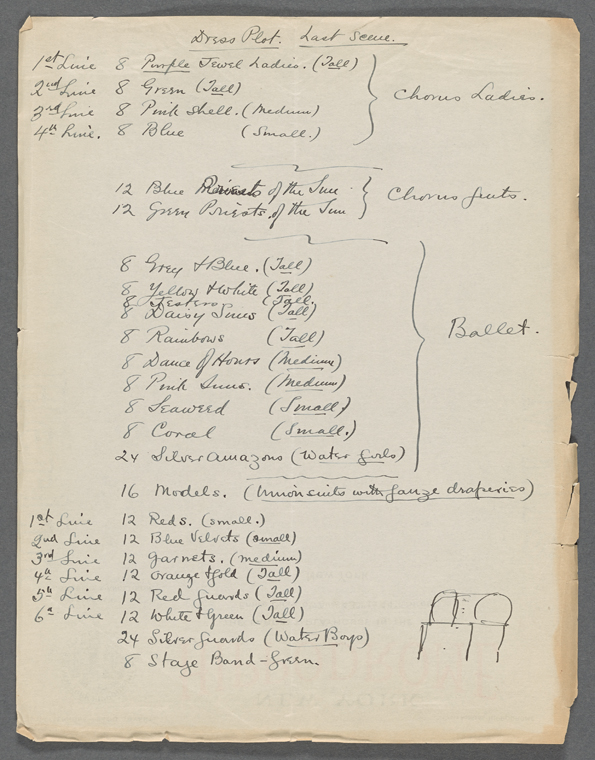 Dress Plot. Last Scene.
1st Line 8 Purple Jewel Ladies. (Tall)
2nd Line 8 Green (Tall)
3rd Line 8 Pink Shell. (Medium)
4th Line. 8 Blue (Small.)
Chorus Ladies.
12 Blue Priests of the Sun.
12 Green Priests of the Sun
Chorus Gents.
8 Grey & Blue. (Tall)
8 Yellow & White (Tall)
8 Jesters (Tall.
8 Daisy Suns (Tall)
8 Rainbows (Tall)
8 Dance of Hours (Medium)
8 Pink Suns. (Medium)
8 Seaweed (Small)
8 Coral (Small.)
24 Silver Amazons (Water Girls)
Ballet.
16 Models. (Unionsuits with gauze draperies)
1st Line 12 Reds. (small.)
2nd Line 12 Blue Velvets (small)
3rd Line 12 Garnets. (medium)
4th Line 12 Orange & Gold (Tall)
5th Line 12 Red Guards (Tall)
6th Line 12 White & Green (Tall)
24 Silver Guards (Water Boys)
8 Stage Band - Green.